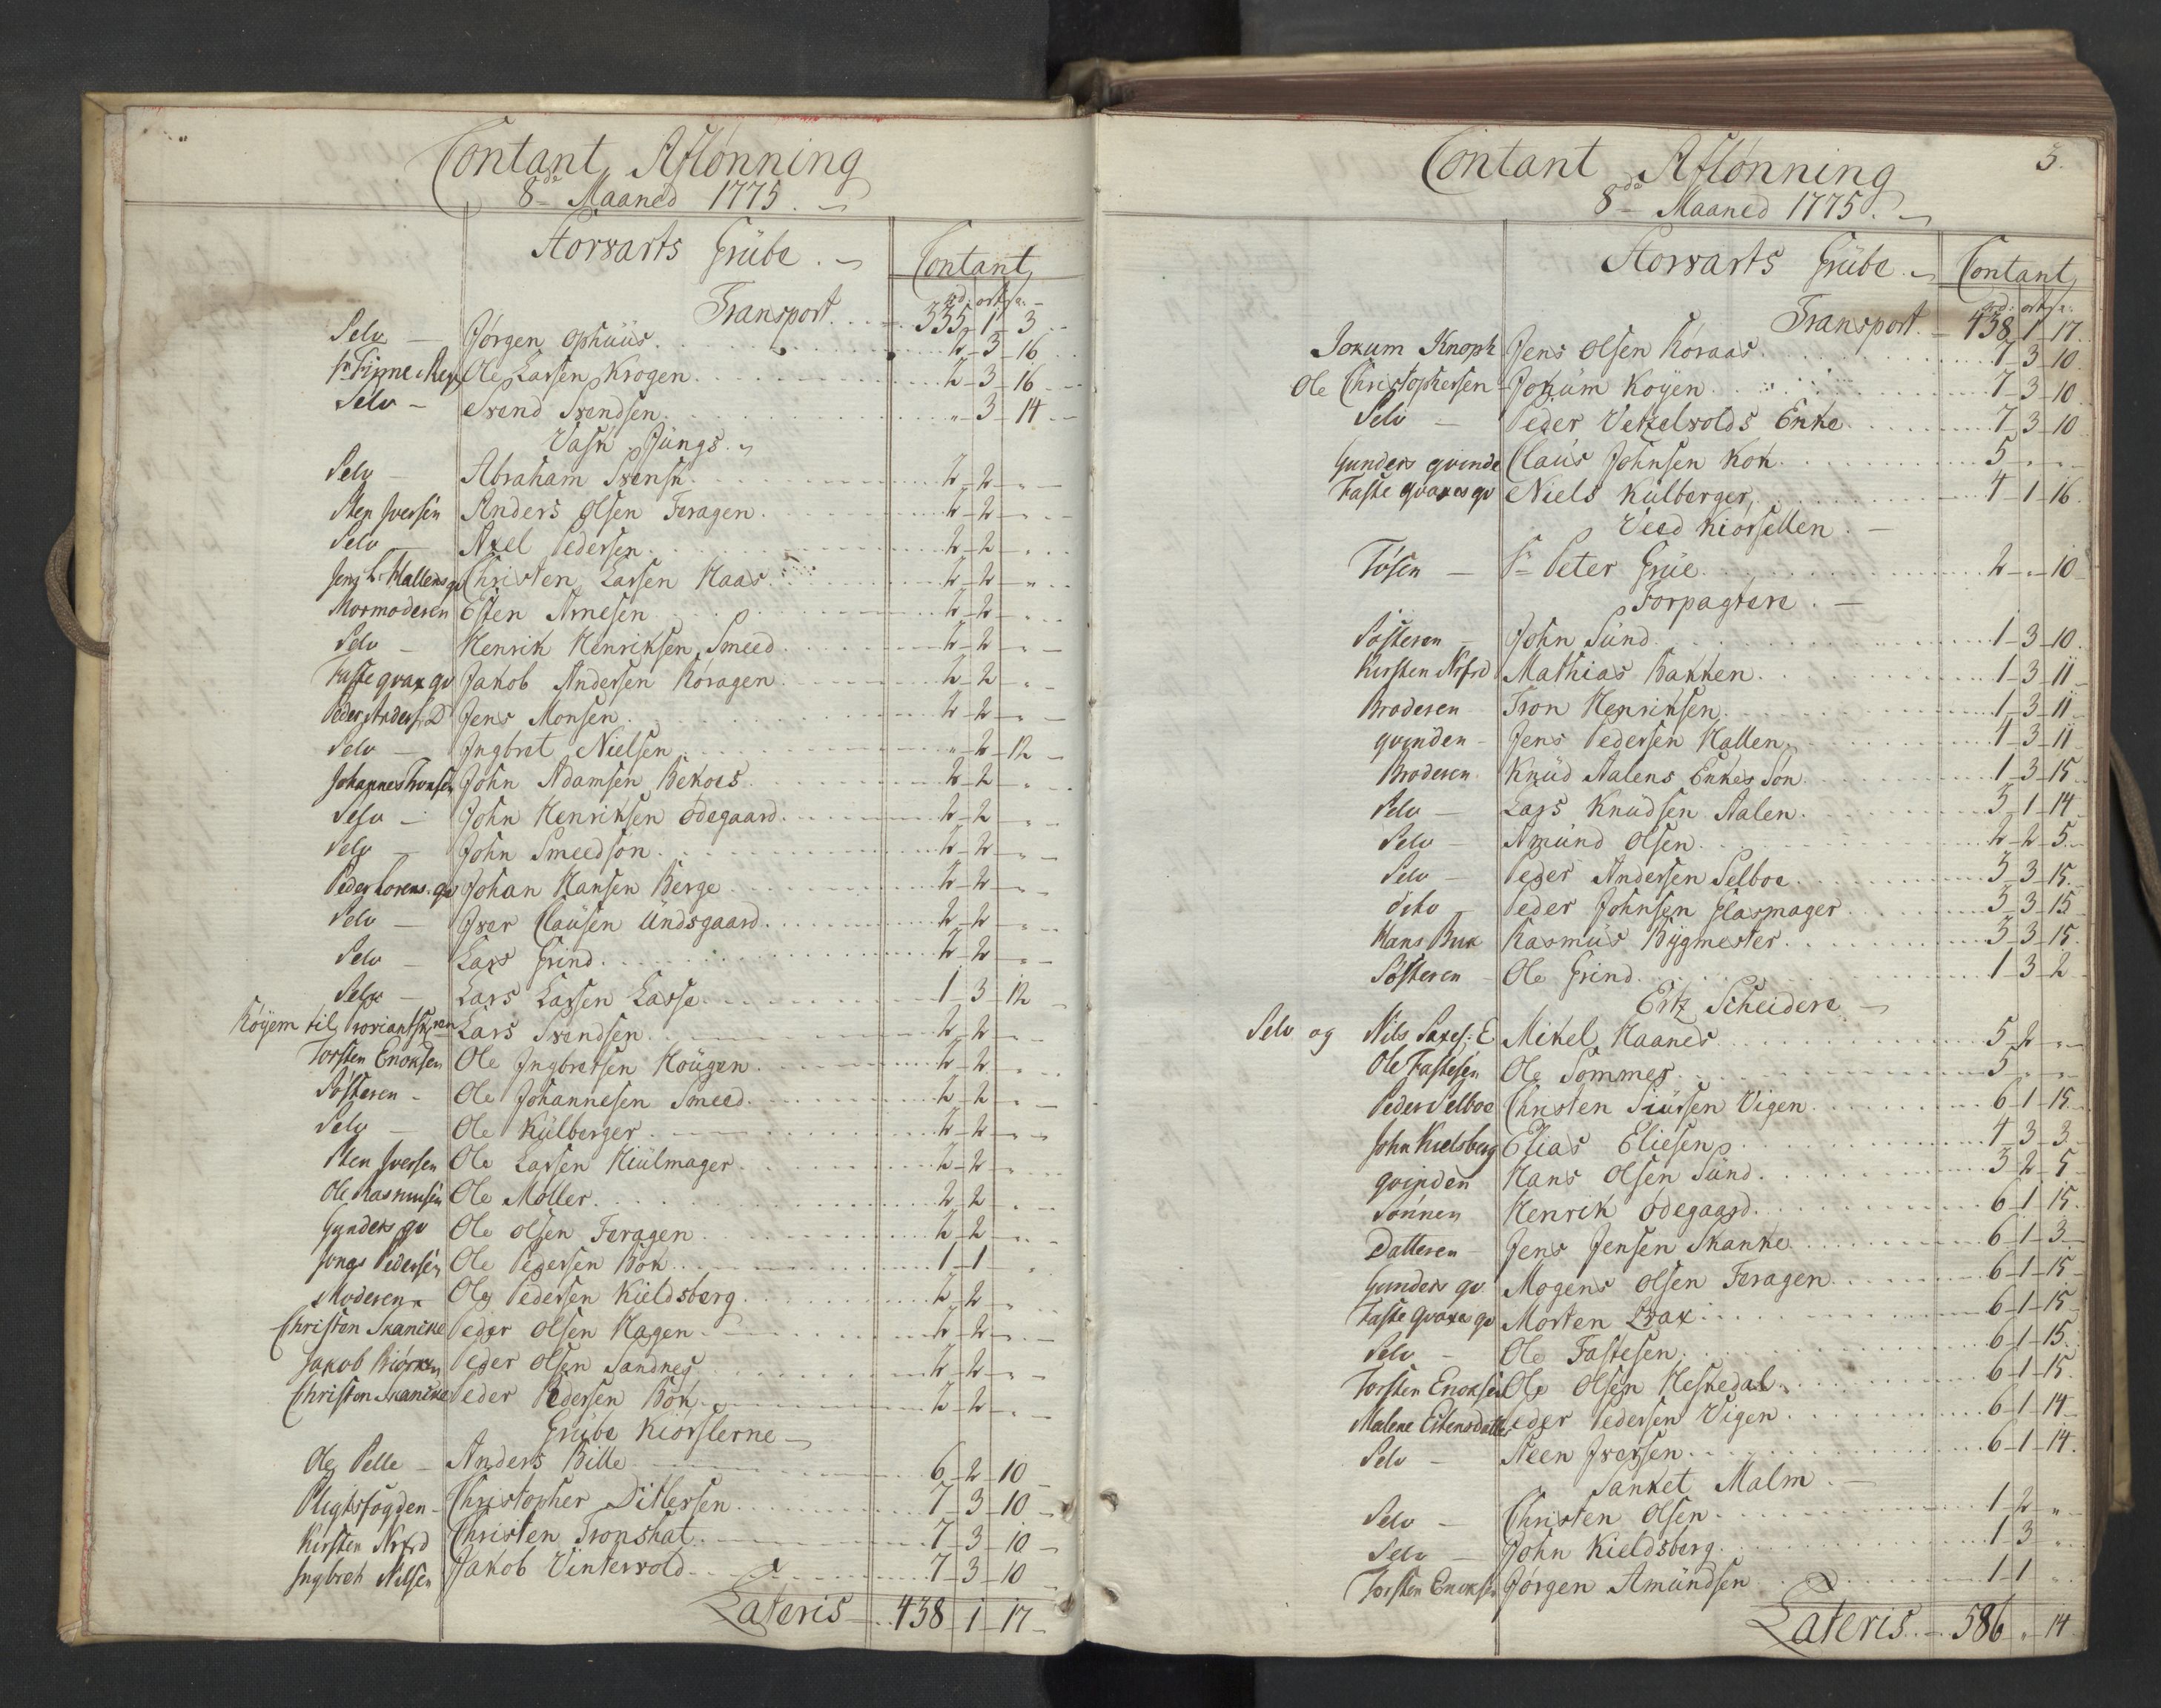 Contant Aflønning
8de Maaned 1775.
Storvarts Grube.
Contant
rd: ort s:
Transport 335 1 3
Selv Jørgen Ophuus 2 3 16
Ole Larsen Krogen 2 3 16
Selv Svend Svendsen " 3 14
Vask Jungs.
Selv Abraham Svensk 2 2 "
Sten Iversen Anders Olsen Feragen 2 2 "
Selv Axel Pedersen 2 2 "
Jens L: Hallens qv Christen Larsen Haas 2 2 "
Mormoderen Esten Arnesen 2 2 "
Selv Henrik Henriksen Smeed 2 2 "
Faste qvax qv Jakob Andersen Røragen 2 2 "
Peder Anders: D Jens Monsen 2 2 "
Selv Ingbret Nielsen " 2 12
Johannes Tronsen John Adamsen Bekoes 2 2 "
Selv John Henriksen Ødegaard 2 2 "
Selv John Smeedsøn 2 2 "
Peder Lorens. qv Johan Hansen Berge 2 2 "
Selv Iver Clausen Undsgaard 2 2 "
Selv Lars Grind 2 2 "
Selv Lars Larsen Lasse 1 3 12
Køyem til Lars Svendsen 2 2 "
Torsten Enoksen Ole Ingbretsen Hougen 2 2 "
Søsteren Ole Johannesen Smeed 2 2 "
Selv Ole Külberger 2 2 "
Sten Iversen Ole Larsen Hiulmager 2 2 "
Ole Rasmusen Ole Møller 2 2 "
Gunders qv Ole Olsen Feragen 2 2 "
Jongs Pedersen Ole Pedersen Bok 1 1 "
Moderen Ole Pedersen Kieldsberg 2 2 "
Christen Skancke Peder Olsen Hagen 2 2 "
Jakob Biørken Peder Olsen Sandnes 2 2 "
Christen Skancke Peder Pedersen Bok 2 2 "
Grube Kiørslerne
Ole Pelle Anders Bille 6 2 10
Pligtsfogden Christopher Ditlersen 7 3 10
Kirsten Arfrd Christen Tronshat 7 3 10
Ingbret Nilsen Jakob Vintervold 7 3 10
Lateris 438 1 17
Contant Aflønning 3.
8de Maaned 1775.
Storvarts Grube.
Contant
rd: ort s:
Transport 438 1 17
Jokum Knoph Jens Olsen Røraas 7 3 10
Ole Christophersen Jokum Koyen 7 3 10
Selv Peder Vekselvolds Enke 7 3 10
Gunders qvinde Claus Johnsen Kok 5 " "
Faste qvaxes qv Niels Külberger 4 1 16
Veed Kiørsellen.
Tøsen Sr Peter Grüe 2 " 10
Forpagtere.
Søsteren John Sund 1 3 10
Kirsten Arfrd Mathias Bakken 1 3 11
Broderen Tron Henriksen 1 3 11
qvinden Jens Pedersen Hallen 1 3 11
Broderen Knud Aalens Enkes Søn 1 3 15
Selv Lars Knudsen Aalen 3 1 14
Selv Amund Olsen 2 2 5
Selv Peder Andersen Selboe 3 3 15
Selv Peder Johnsen Glasmager 3 3 15
Hans Buk Rasmus Bygmester 3 3 15
Søsteren Ole Grind 1 3 2
Ertz Scheidere
Selv og Nils Saxes: E Mikel Haanes 5 2 "
Ole Fastesen Ole Sommer 5 " "
Peder Selboe Christen Siursen Vigen 6 1 15
John Kielsberg Elias Eliesen 4 3 3
qvinden Hans Olsen Sund 3 2 5
Sønnen Henrik Ødegaard 6 1 15
Datteren Jens Jensen Skanke 6 1 3
Gunders qv Mogens Olsen Feragen 6 1 15
Faste Qvaxe qv Morten Qvax 6 1 15
Selv Ole Fastesen 6 1 15
Torsten Enoksen Ole Olsen Heskedal 6 1 15
Malene Estensdatter Peder Pedersen Vigen 6 1 14
Selv Steen Iversen 6 1 14
Sanket Malm.
Selv Christen Olsen 1 2 "
Selv John Kieldsberg 1 3 "
Torsten Enoksen Jørgen Amundsen 1 1 "
Lateris 586 " 14